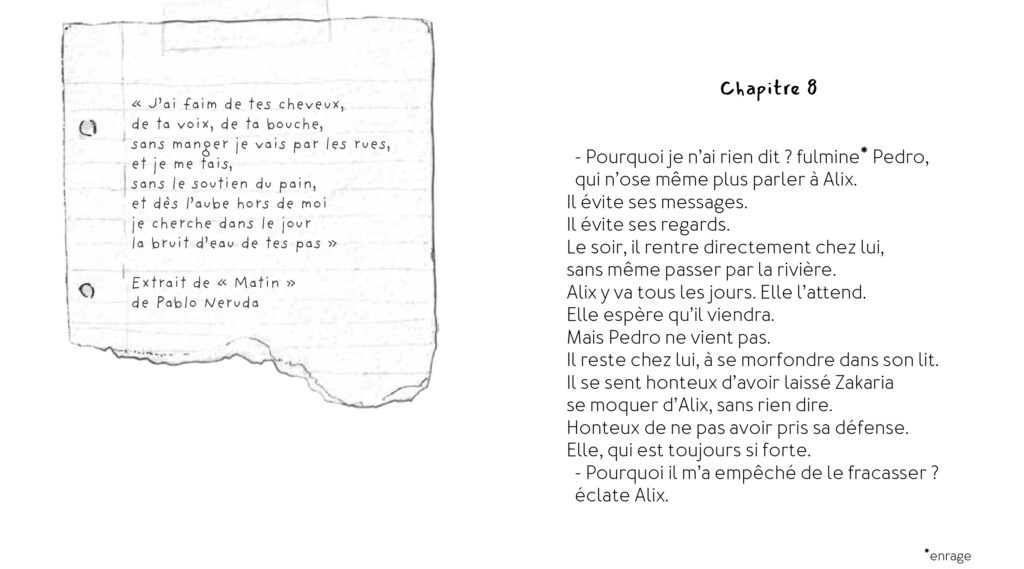 « J'ai faim de tes cheveux,
de ta voix, de ta bouche,
sans manger je vais par les rues,
et je me tais,
sans le soutien du pain,
et dès l'aube hors de moi
je cherche dans le jour
la bruit d'eau de tes pas »
Extrait de « Matin »
de Pablo Neruda
Chapitre 8
- Pourquoi je n'ai rien dit ? fulmine* Pedro,
qui n'ose même plus parler à Alix.
Il évite ses messages.
Il évite ses regards.
Le soir, il rentre directement chez lui,
sans même passer par la rivière.
Alix y va tous les jours. Elle l'attend.
Elle espère qu'il viendra.
Mais Pedro ne vient pas.
Il reste chez lui, à se morfondre dans son lit.
Il se sent honteux d'avoir laissé Zakaria
se moquer d'Alix, sans rien dire.
Honteux de ne pas avoir pris sa défense.
Elle, qui est toujours si forte.
- Pourquoi il m'a empêché de le fracasser ?
éclate Alix.
*enrage